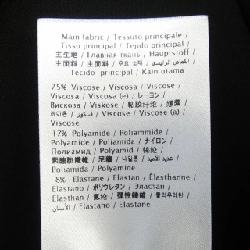 Main fabric / Tessuto principale /
Tissu principal / Tejido principal /
Главная ткань / Hauptstoff /
主面料 / 主面料 /
Tecido principal / Kain utama
75% Viscose / Viscosa / Viscose /
Viscosa / Viscose (m) / レーヨン /
Вискоза / Viskose / 粘胶纤维 /
/ Viscose / Viscose (a) /
Viscose
17% Polyamide / Poliammide /
Polyamide / Poliamida / ナイロン /
Полиамид / Polyamid /
/ 나일론 /
Poliamida / Poliamida
8% Elastane / Elastan / Élasthanne /
Elastano / ポリウレタン / Эластан /
Elasthan / 氨纶 / 彈性纖維 /
/ Elastano / Elastane